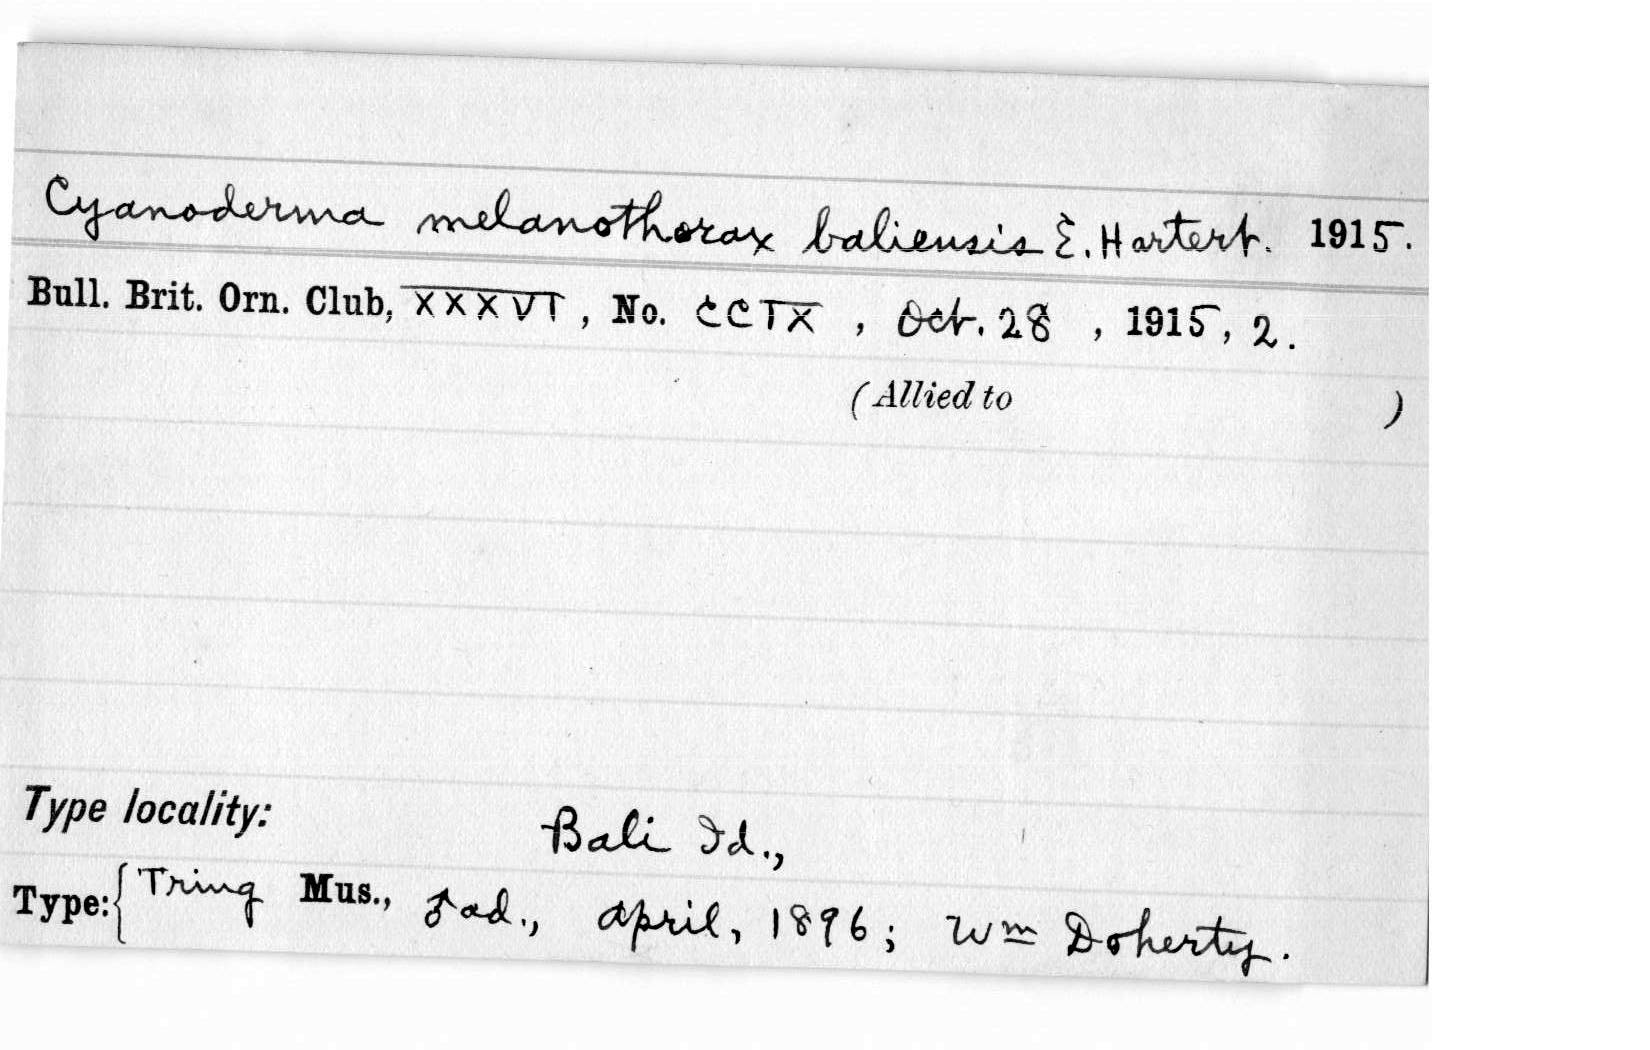 Cyanoderma melanothorax baliensis E. Hartert. 1915.
Bull. Brit. Orn. Club, XXXVI, No. CCIX, Oct. 28, 1915, 2.
(Allied to )
Type locality: Bali Id.,
Type: { Tring Mus., ♂ ad., April, 1896; Wm Doherty.